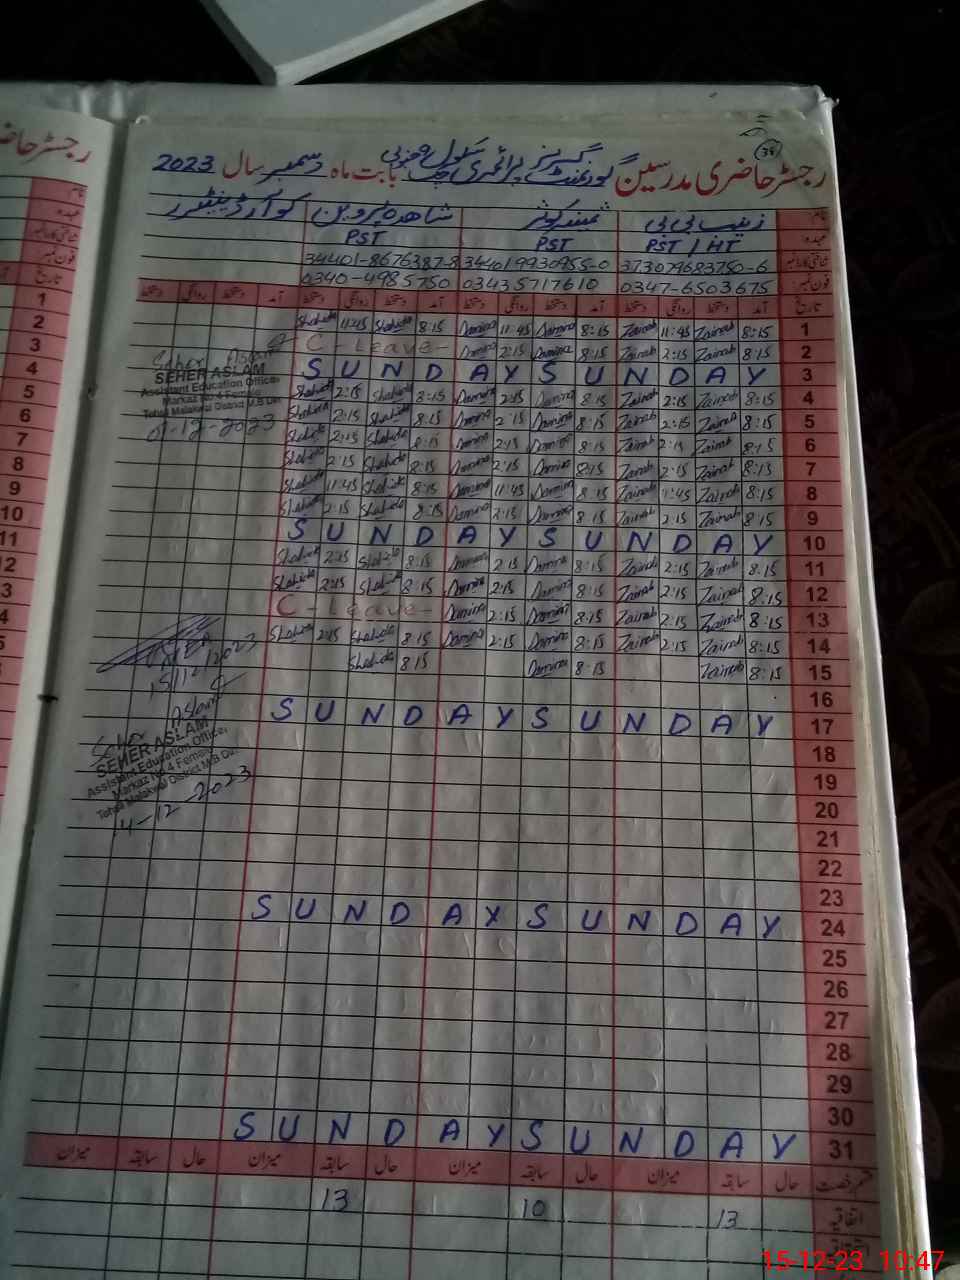 رجسٹر حاضری مدرسین گورنمنٹ گرلز پرائمری سکول بابت ماہ دسمبر سال 2023
نام زینب بی بی ثمینہ کوثر شاھدہ پروین کوآرڈینیٹر
عہدہ PST / HT PST PST
373079683750-6 344019930955-0 34401-8676387-8
فون نمبر 0347-6503675 03435717610 0340-4985750
تاریخ آمد دستخط روانگی دستخط آمد دستخط روانگی دستخط آمد دستخط روانگی دستخط آمد دستخط روانگی دستخط
1 8:15 Zainab 11:45 Zainab 8:15 Damina 11:45 Damina 8:15 Shahida 11:45 Shahida
2 8:15 Zainab 2:15 Zainab 8:15 Damina 2:15 Damina C - Leave -
3 S U N D A Y S U N D A Y
4 8:15 Zainab 2:15 Zainab 8:15 Damina 2:15 Damina 8:15 Shahida 2:15 Shahida
5 8:15 Zainab 2:15 Zainab 8:15 Damina 2:15 Damina 8:15 Shahida 2:15 Shahida
6 8:15 Zainab 2:15 Zainab 8:15 Damina 2:15 Damina 8:15 Shahida 2:15 Shahida
7 8:15 Zainab 2:15 Zainab 8:15 Damina 2:15 Damina 8:15 Shahida 2:15 Shahida
8 8:15 Zainab 11:45 Zainab 8:15 Damina 11:45 Damina 8:15 Shahida 11:45 Shahida
9 8:15 Zainab 2:15 Zainab 8:15 Damina 2:15 Damina 8:15 Shahida 2:15 Shahida
10 S U N D A Y S U N D A Y
11 8:15 Zainab 2:15 Zainab 8:15 Damina 2:15 Damina 8:15 Shahida 2:15 Shahida
12 8:15 Zainab 2:15 Zainab 8:15 Damina 2:15 Damina 8:15 Shahida 2:15 Shahida
13 8:15 Zainab 2:15 Zainab 8:15 Damina 2:15 Damina C - Leave -
14 8:15 Zainab 2:15 Zainab 8:15 Damina 2:15 Damina 8:15 Shahida 2:15 Shahida
15 8:15 Zainab 8:15 Damina 8:15 Shahida
16
17 S U N D A Y S U N D A Y
18
19
20
21
22
23
24 S U N D A Y S U N D A Y
25
26
27
28
29
30
31 S U N D A Y S U N D A Y
قسم رخصت حال سابقہ میزان حال سابقہ میزان حال سابقہ میزان حال سابقہ میزان
اتفاقیہ 13 10 13
Seher Aslam
SEHER ASLAM
Assistant Education Officer
Markaz No 4 Female
Tehsil Malakwal District M.B Din
01-12-2023
15/12/2023
Seher Aslam
SEHER ASLAM
Assistant Education Officer
Markaz No 4 Female
Tehsil Malakwal District M.B Din
14-12-2023
رجسٹر حاضری
نام
عہدہ
فون نمبر
تاریخ
1
2
3
4
5
6
7
8
9
10
11
15-12-23 10:47